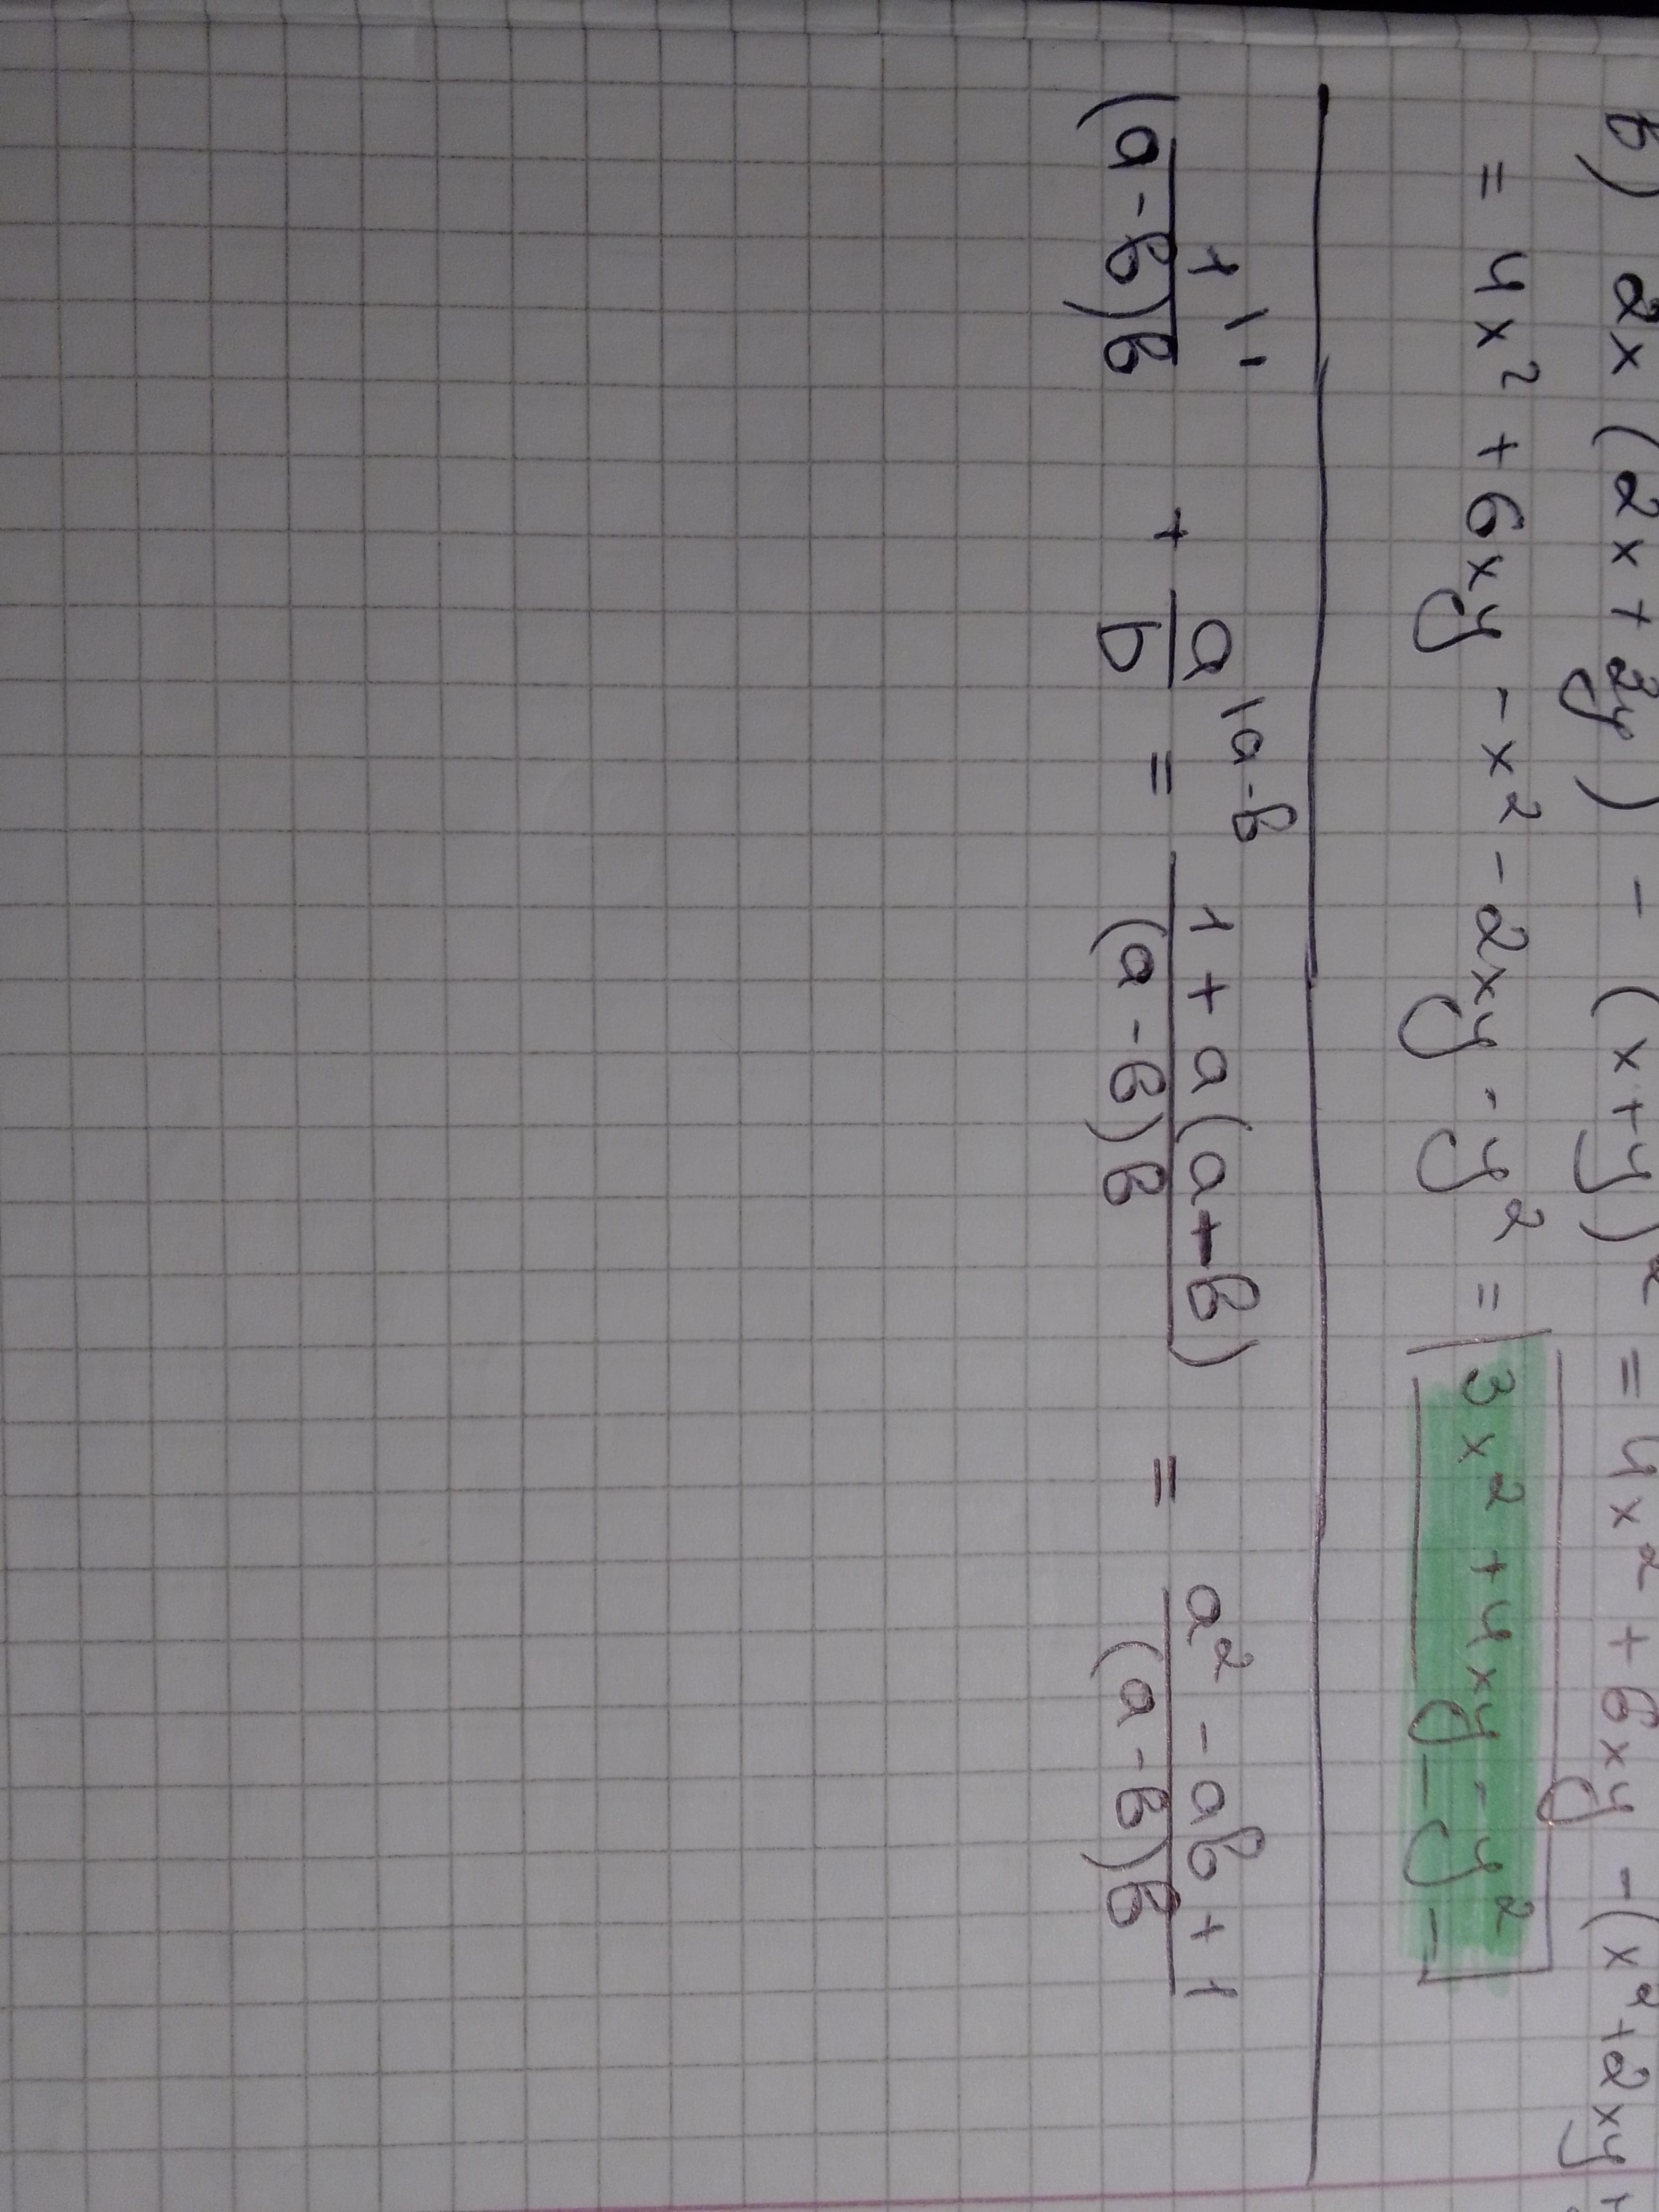 б) 2x (2x + 3y) - (x+y)² = 4x² + 6xy - (x² + 2xy +
= 4x² + 6xy - x² - 2xy - y² = 3x² + 4xy - y²
1 |1 / (a - b)b + a |a-b / b = 1 + a(a-b) / (a - b)b = a² - ab + 1 / (a - b)b